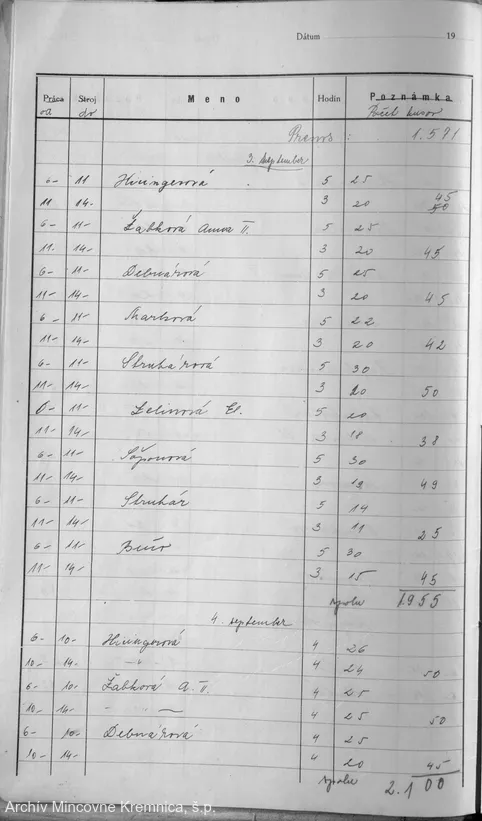 Dátum 19
Práca Stroj Meno Hodín Poznámka
od do Počet kusov
Prenos : 1.571
3. september
6- 11 Hwingerová 5 25
11 14- 3 20 45
50
6- 11- Žabková Anna II. 5 25
11. 14- 3 20 45
6- 11- Debnárová 5 25
11- 14- 3 20 45
6- 11- Marková 5 22
11- 14- 3 20 42
6- 11- Struhárová 5 30
11- 14- 3 20 50
6- 11- Zelinová El. 5 20
11- 14- 3 18 38
6- 11- 5 30
11- 14- 3 19 49
6- 11- Struhár 5 14
11- 14- 3 11 25
6- 11- 5 30
11- 14- 3. 15 45
spolu 1955
4. september
6- 10- Hwingerová 4 26
10- 14- -"- 4 24 50
6- 10- Žabková A. II. 4 25
10- 14- - - 4 25 50
6- 10- Debnárová 4 25
10- 14- 4 20 45
spolu 2.100
Archív Mincovne Kremnica, š.p.